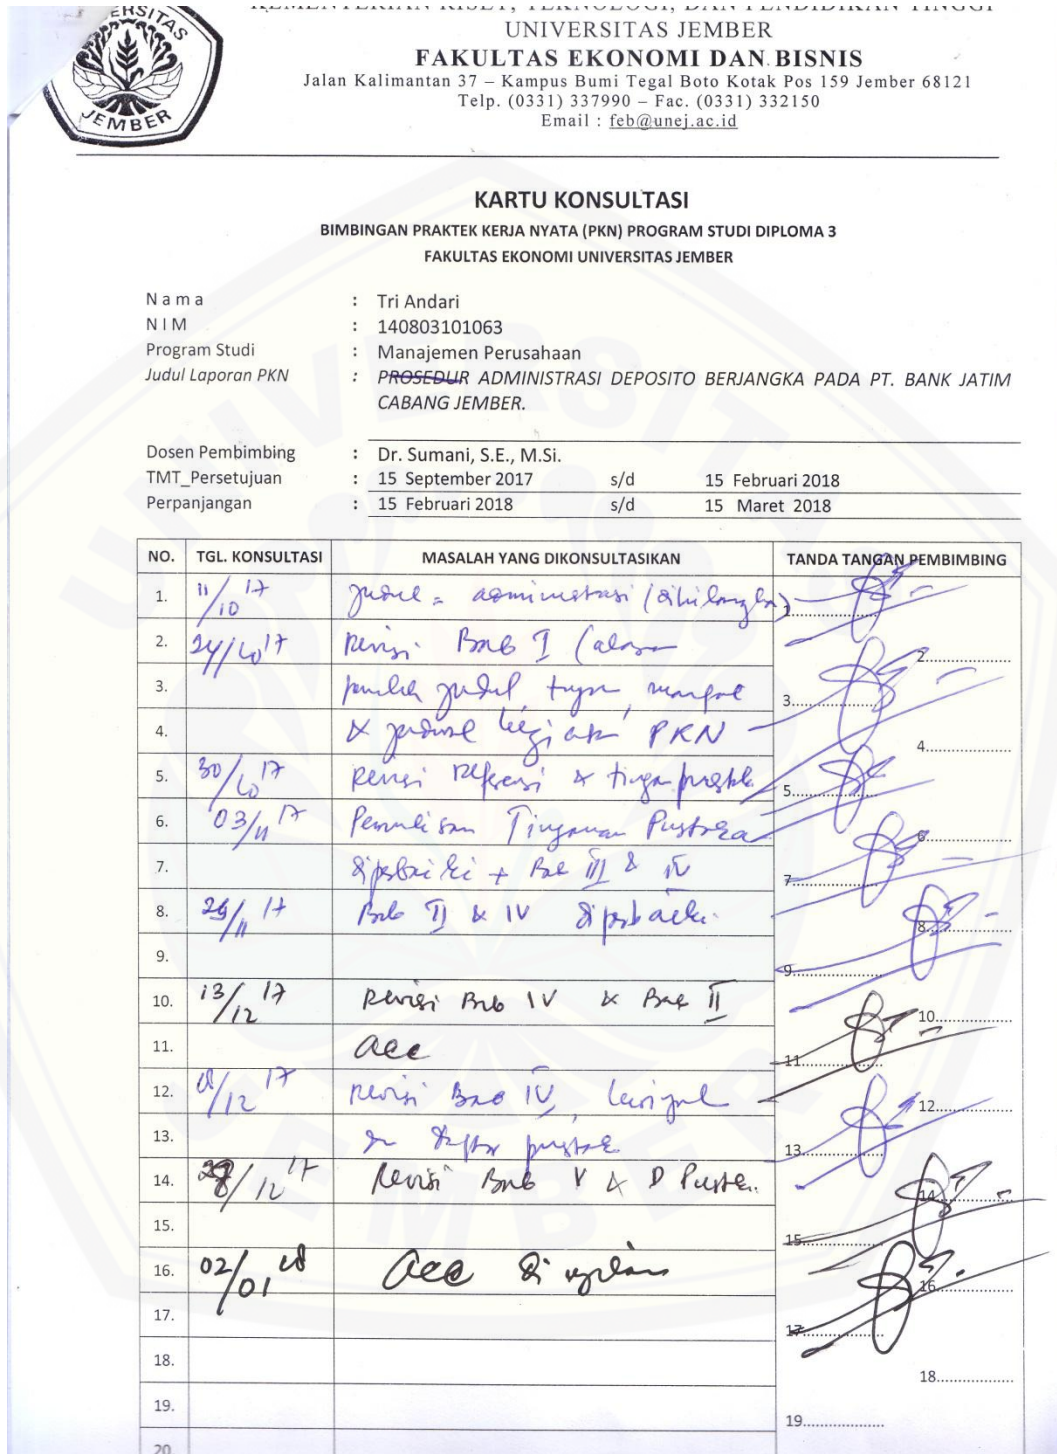 KEMENTERIAN RISET, TEKNOLOGI, DAN PENDIDIKAN TINGGI
UNIVERSITAS JEMBER
FAKULTAS EKONOMI DAN BISNIS
Jalan Kalimantan 37 – Kampus Bumi Tegal Boto Kotak Pos 159 Jember 68121
Telp. (0331) 337990 – Fac. (0331) 332150
Email : feb@unej.ac.id
JEMBER
KARTU KONSULTASI
BIMBINGAN PRAKTEK KERJA NYATA (PKN) PROGRAM STUDI DIPLOMA 3
FAKULTAS EKONOMI UNIVERSITAS JEMBER
N a m a : Tri Andari
N I M : 140803101063
Program Studi : Manajemen Perusahaan
Judul Laporan PKN : PROSEDUR ADMINISTRASI DEPOSITO BERJANGKA PADA PT. BANK JATIM
CABANG JEMBER.
Dosen Pembimbing : Dr. Sumani, S.E., M.Si.
TMT_Persetujuan : 15 September 2017 s/d 15 Februari 2018
Perpanjangan : 15 Februari 2018 s/d 15 Maret 2018
NO. TGL. KONSULTASI MASALAH YANG DIKONSULTASIKAN TANDA TANGAN PEMBIMBING
1. 11/10 17 judul = administrasi
2. 24/10 17 Revisi Bab I (alasan 2
3. judul, 3
4. & jadwal kegiatan PKN 4
5. 30/10 17 Revisi Referensi & 5
6. 03/11 17 Penulisan Tinjauan Pustaka 6
7. diperbaiki + Bab III & IV 7
8. /11 17 Bab II & IV diperbaiki. 8
9. 9
10. 13/12 17 Revisi Bab IV & Bab II 10
11. acc 11
12. /12 17 Revisi Bab IV, 12
13. daftar pustaka 13
14. /12 17 Revisi Bab V & D Pustaka. 14
15. 15
16. 02/01 18 acc 16
17. 17
18. 18
19. 19
20